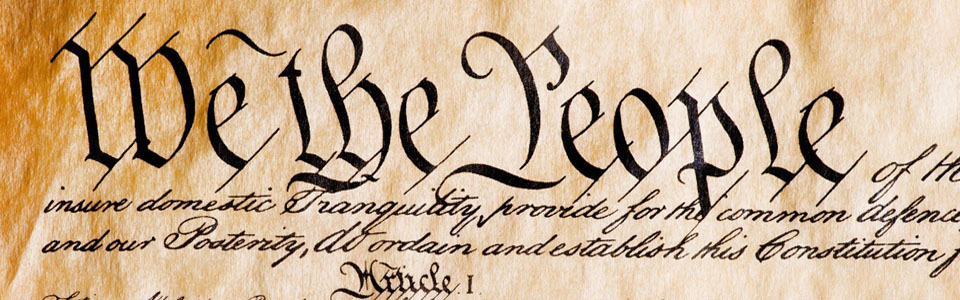 We the People of the
insure domestic Tranquility, provide for the common defence
and our Posterity, do ordain and establish this Constitution f
Article I.